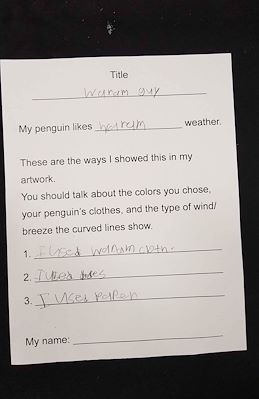 Title
Waram guy
My penguin likes weather.
These are the ways I showed this in my
artwork.
You should talk about the colors you chose,
your penguin's clothes, and the type of wind/
breeze the curved lines show.
1. I used waram cloth.
2. I used
3. I used
My name: